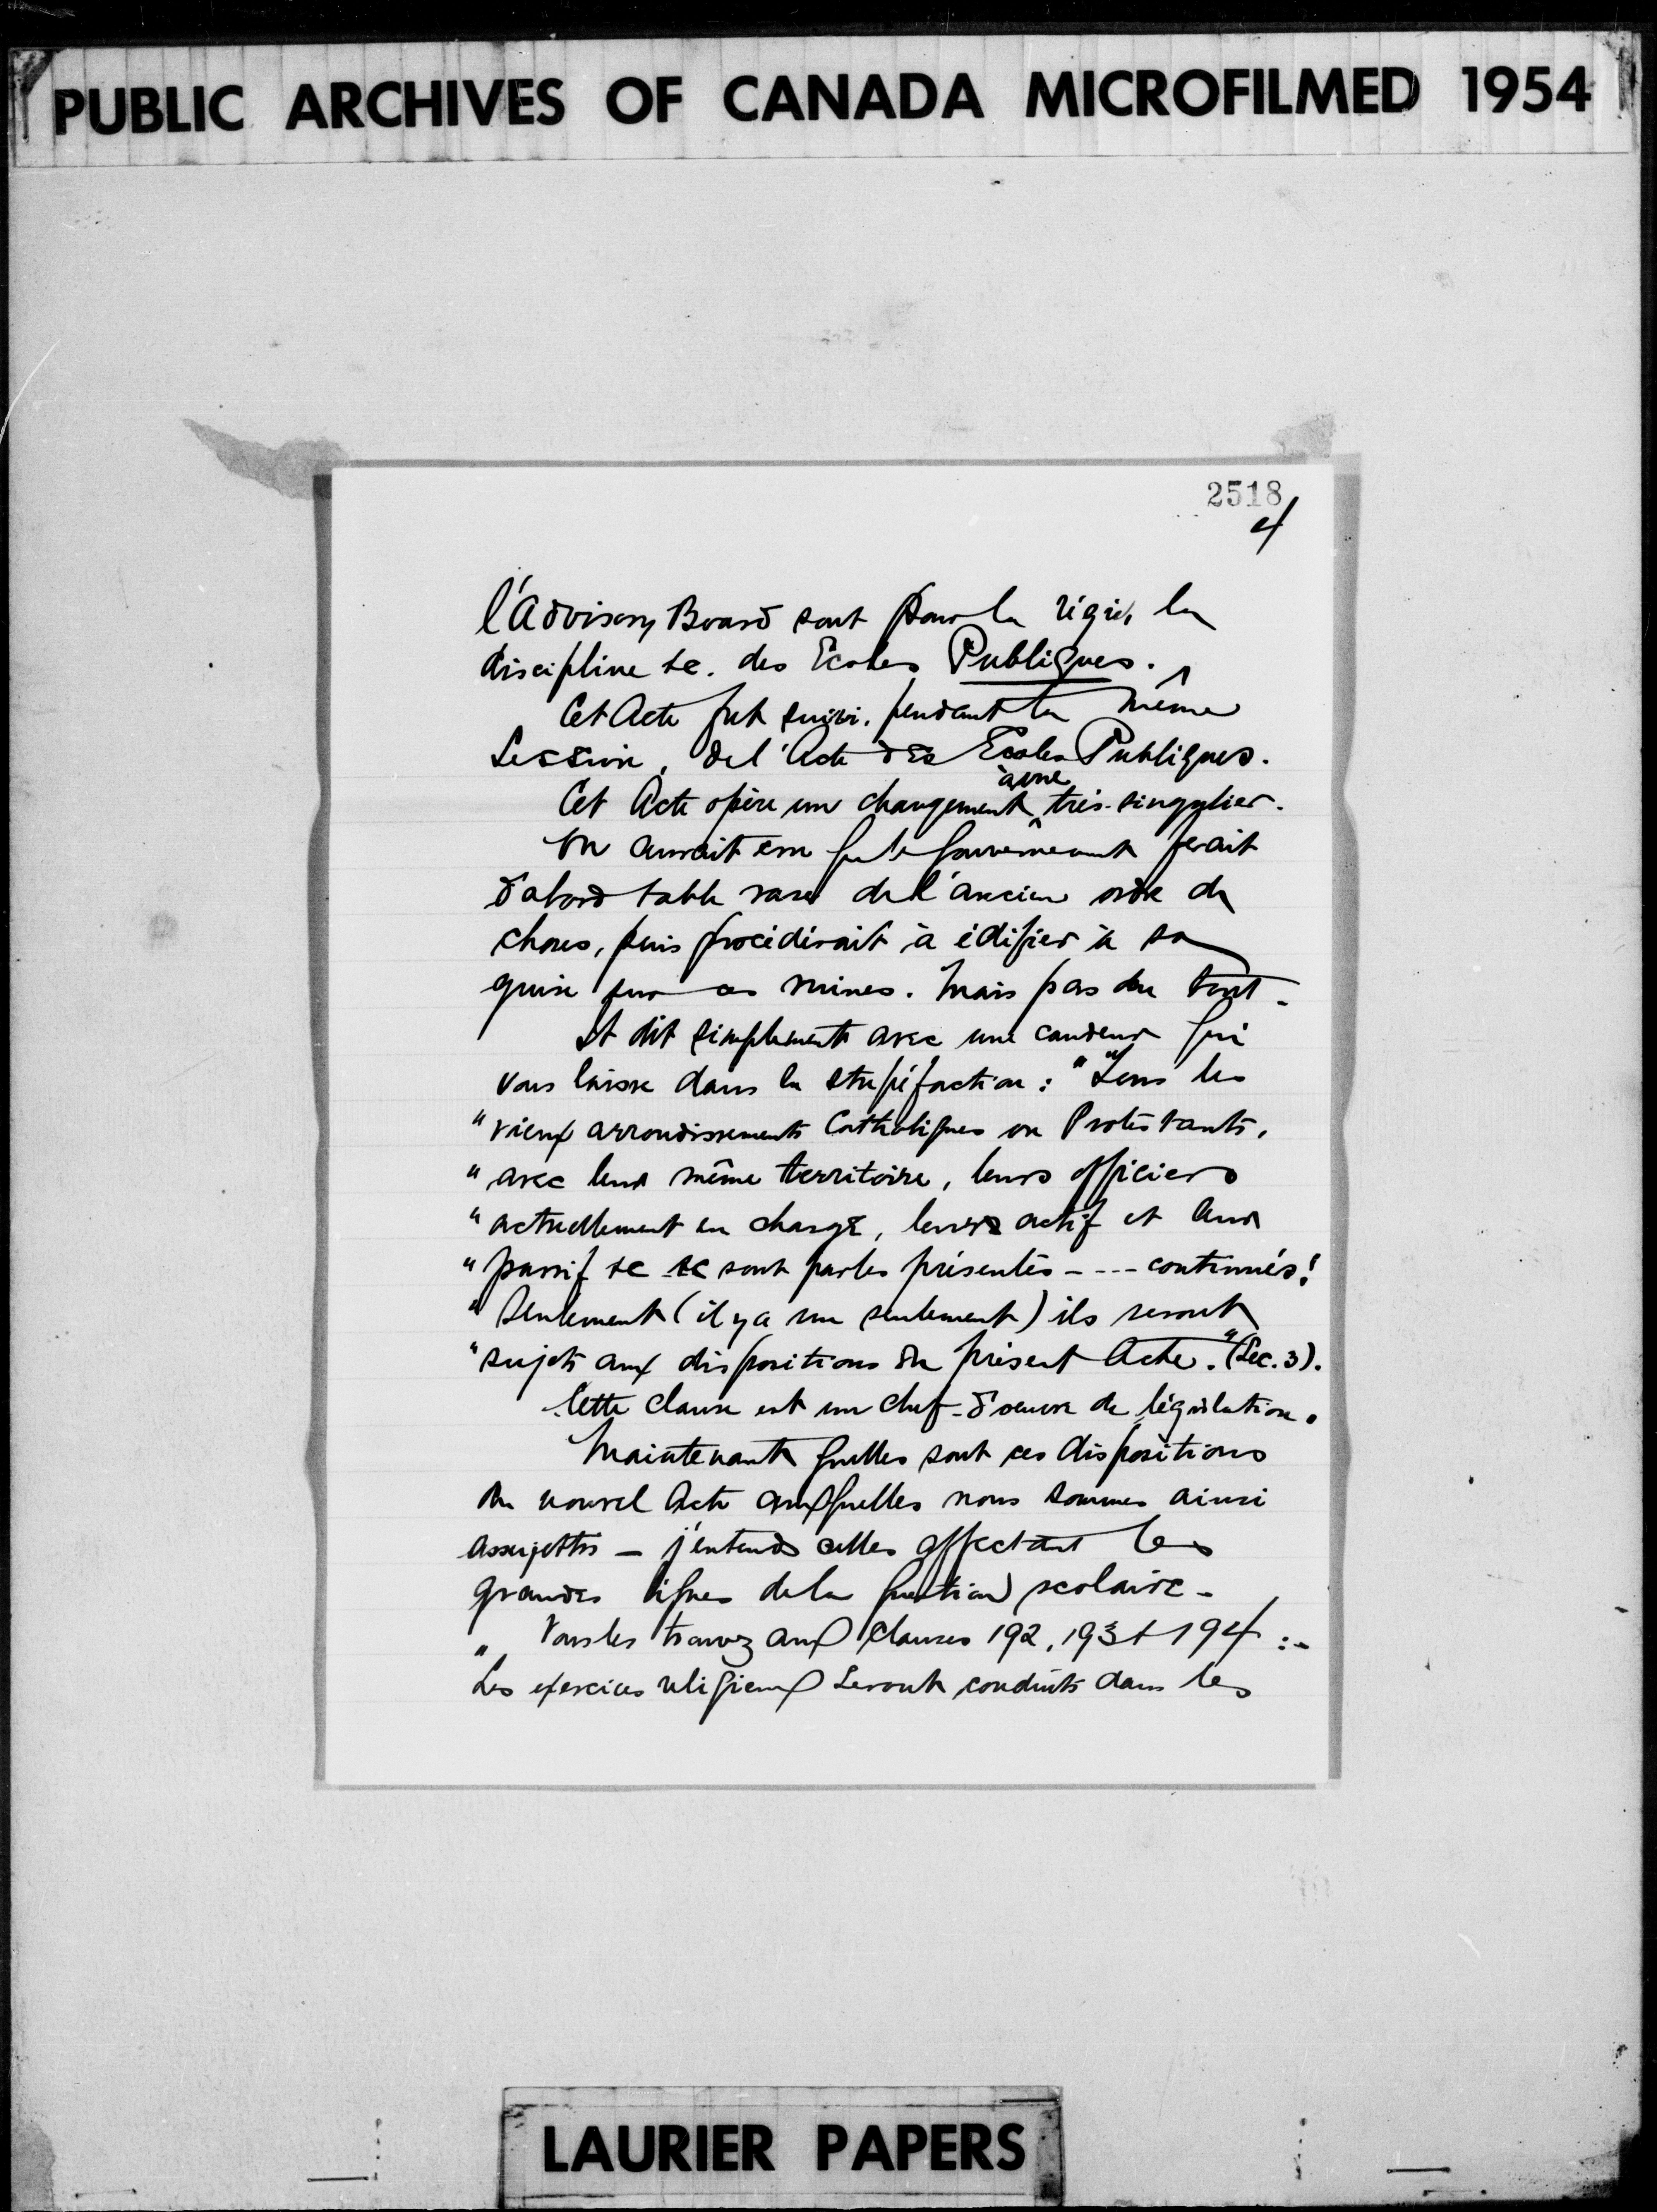 PUBLIC ARCHIVES OF CANADA MICROFILMED 1954
2518
4
l'Advisory Board sont pour la régie, la
discipline &c. des Ecoles Publiques.
Cet Acte fut suivi, pendant la même
Session, de l'Acte des Ecoles Publiques.
à une
Cet Acte opère un changement très-singulier.
On aurait cru que le Gouvernement ferait
d'abord table rase de l'ancien ordre de
choses, puis procéderait à édifier à sa
guise sur ces ruines. Mais pas du tout.
Il dit simplement avec une candeur qui
vous laisse dans la stupéfaction : " "Tous les
" vieux arrondissements Catholiques ou Protestants,
" avec leur même territoire, leurs officiers
" actuellement en charge, leurs actif et leur
" passif &c &c sont par les présentes - - - - continués!
" Seulement (il y a un seulement) ils seront
" sujets aux dispositions du présent Acte." (Sec. 3).
Cette clause est un chef-d'oeuvre de législation.
Maintenant quelles sont ces dispositions
du nouvel Acte auxquelles nous sommes ainsi
assujettis — j'entends celles affectant les
grandes lignes de la question scolaire -
Vous les trouvez aux clauses 192, 193 & 194 :-
" Les exercices religieux seront conduits dans les
LAURIER PAPERS